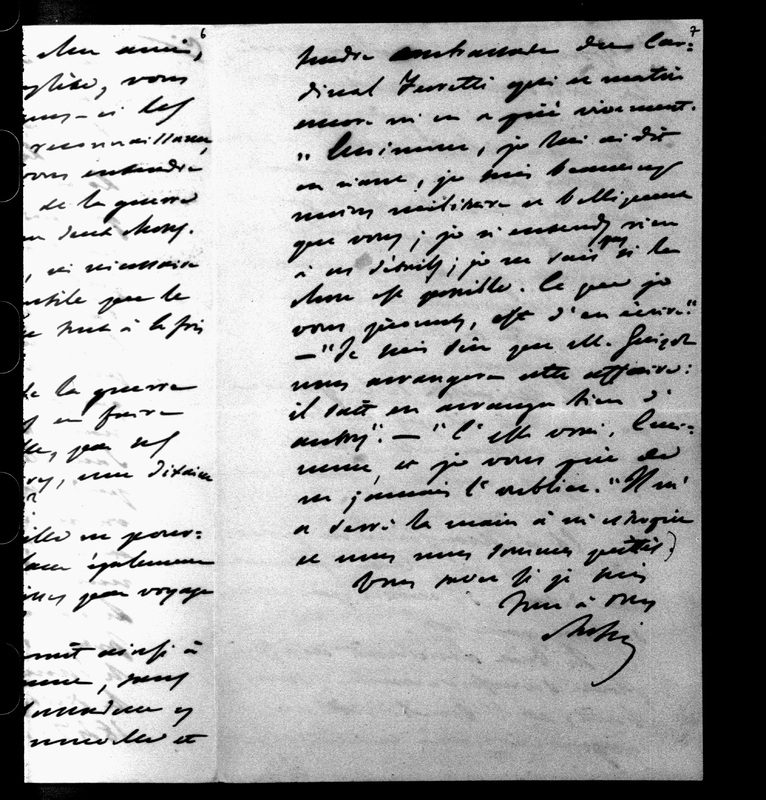 6
cher ami,
église, vous
reconnaissance,
vous entendre
de la guerre
deux choses.
nécessaire
que le
tout à la fois
de la guerre
en faire
une dixaine
pour=
également
voyage
ainsi à
sans
et
7
tendre ambassade du Car=
dinal Ferretti qui ce matin
encore m'en a prié vivement.
"Eminence, je lui ai dit
en riant, je suis beaucoup
moins militaire et belligérant
que vous; je n'entends rien
à ces détails; je ne sais pas si la
chose est possible. Ce que je
vous promets, c'est d'en écrire."
—"Je suis sûr que M. Guizot
nous arrangera cette affaire:
il sait en arranger bien d'
autres." — "C'est vrai, Emi=
nence, et je vous prie de
ne jamais l'oublier." Il m'
a serré la main à m'estropier
et nous nous sommes quittés)
Vous savez si je suis
Tout à vous
Rossi